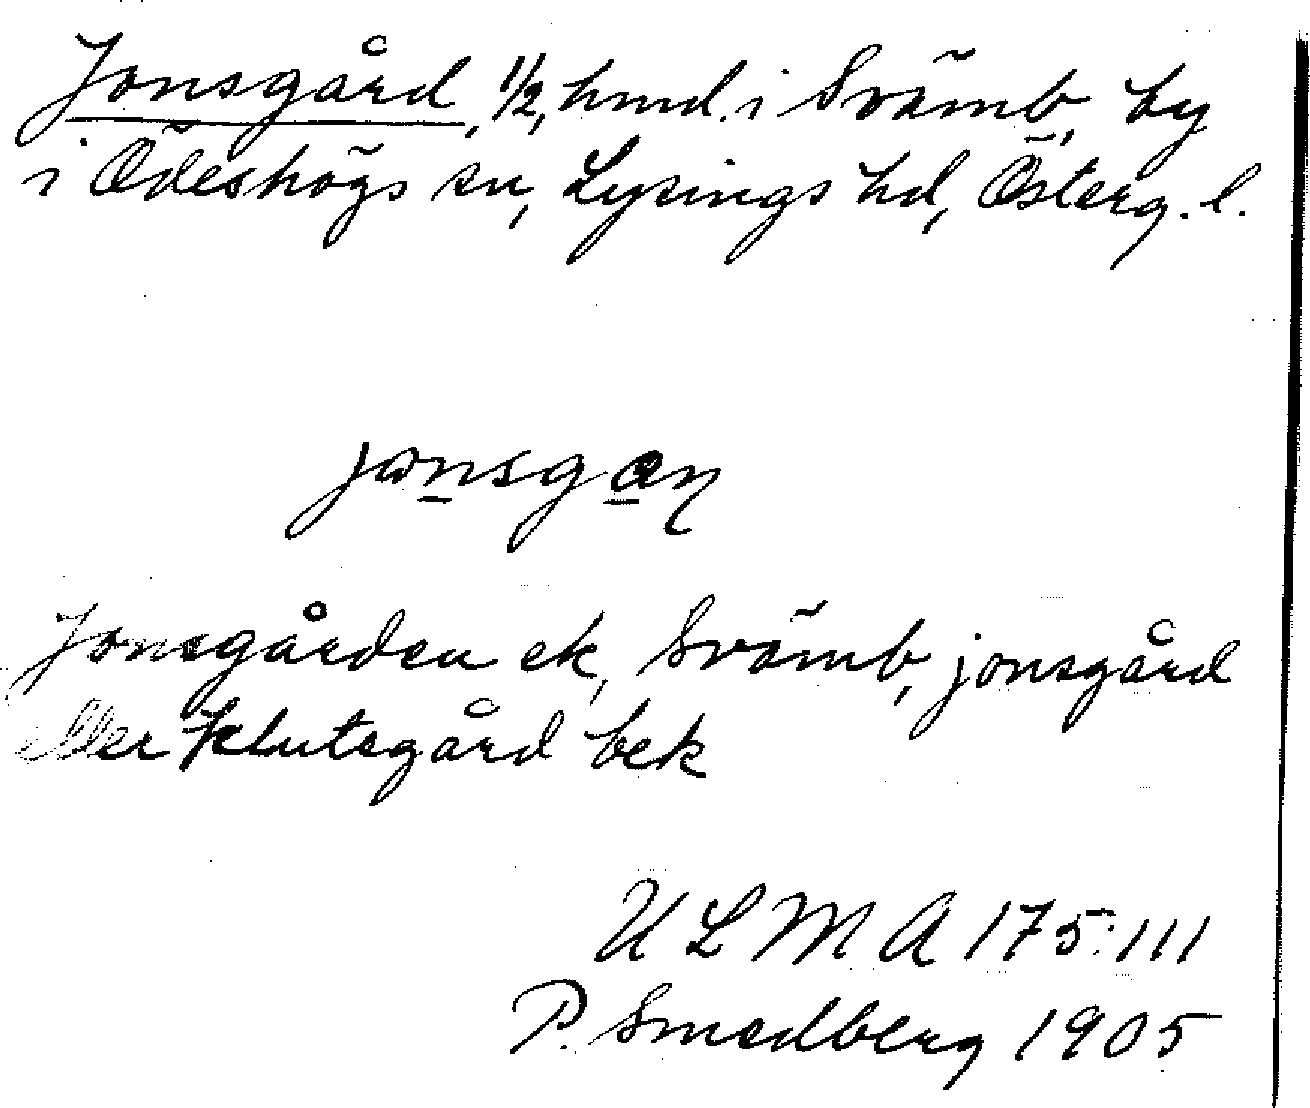 Jonsgård, 1/2, hmd. i Svämb, by
i Ödeshögs sn, Lysings hd, Österg. l.
Jonsgården ek, Svämb, jonsgård
eller Klutsgård bek
ULMA 175:111
P. Smedberg 1905